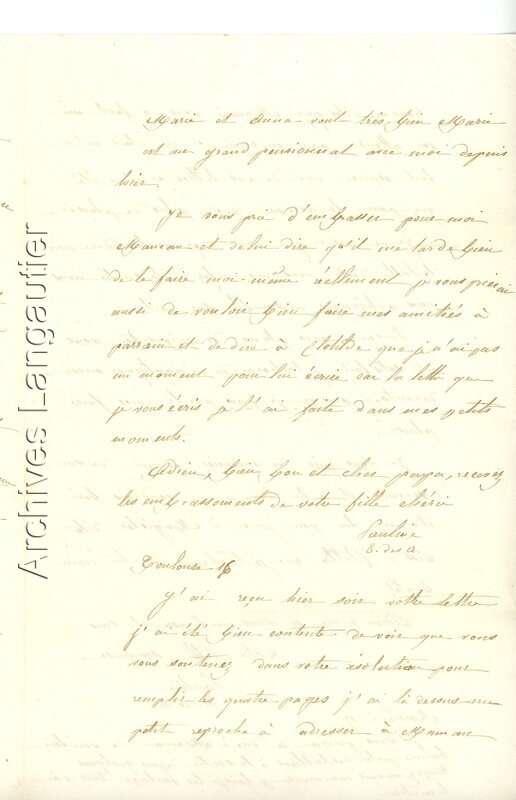 Marie et Anna vont très bien Marie
est au grand pensionnat avec moi depuis
hier.
Je vous prie d'embrasser pour moi
Maman et de lui dire qu'il me tarde bien
de le faire moi-même réellement je vous prierai
aussi de vouloir bien faire mes amitiés à
parrain et de dire à Clotilde que je n'ai pas
un moment pour lui écrire car la lettre que
je vous écris je l'ai faite dans mes petits
moments.
Adieu, bien bon et cher papa, recevez
les embrassements de votre fille chérie
Pauline
E. des a.
Toulouse 16
J'ai reçu hier soir votre lettre
j'ai été bien contente de voir que vous
vous soutenez dans votre résolution pour
remplir les quatre pages j'ai là dessus un
petit reproche à adresser à Maman
Archives Langautier